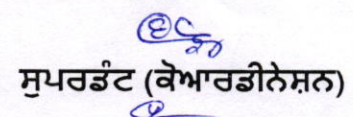 ਸੁਪਰਡੰਟ (ਕੋਆਰਡੀਨੇਸ਼ਨ)